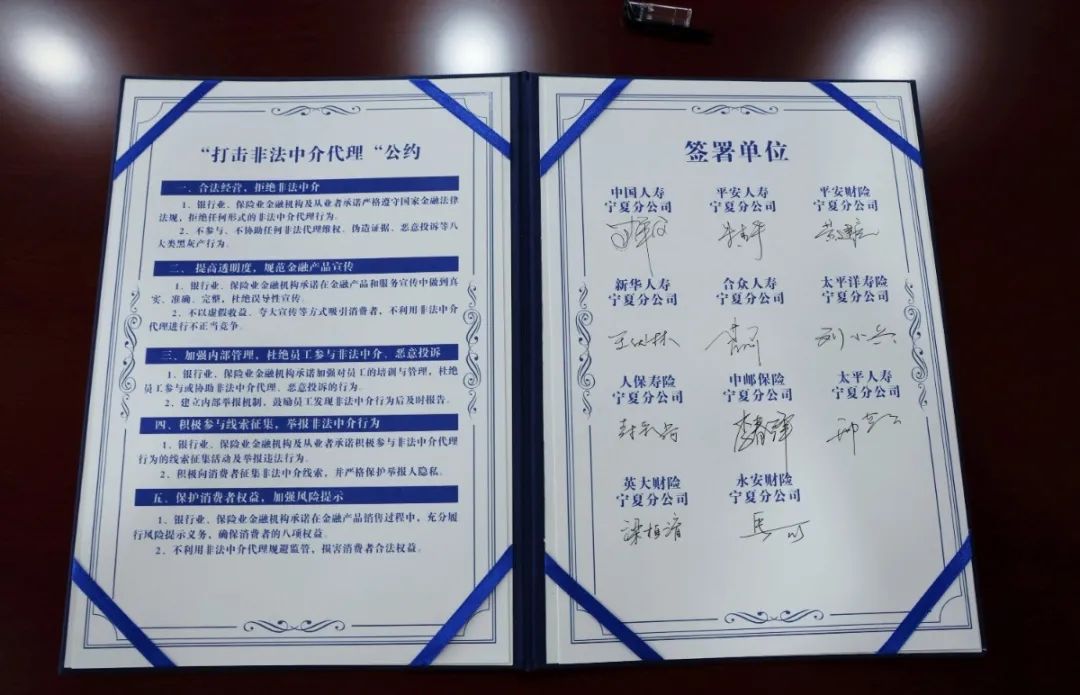 “打击非法中介代理“公约
一、合法经营，拒绝非法中介
1、银行业、保险业金融机构及从业者承诺严格遵守国家金融法律
法规，拒绝任何形式的非法中介代理行为。
2、不参与、不协助任何非法代理维权、伪造证据、恶意投诉等八
大类黑灰产行为。
二、提高透明度，规范金融产品宣传
1、银行业、保险业金融机构承诺在金融产品和服务宣传中做到真
实、准确、完整，杜绝误导性宣传。
2、不以虚假收益、夸大宣传等方式吸引消费者，不利用非法中介
代理进行不正当竞争。
三、加强内部管理，杜绝员工参与非法中介、恶意投诉
1、银行业、保险业金融机构承诺加强对员工的培训与管理，杜绝
员工参与或协助非法中介代理、恶意投诉的行为。
2、建立内部举报机制，鼓励员工发现非法中介行为后及时报告。
四、积极参与线索征集，举报非法中介行为
1、银行业、保险业金融机构及从业者承诺积极参与非法中介代理
行为的线索征集活动及举报违法行为。
2、积极向消费者征集非法中介线索，并严格保护举报人隐私。
五、保护消费者权益，加强风险提示
1、银行业、保险业金融机构承诺在金融产品销售过程中，充分履
行风险提示义务，确保消费者的八项权益。
2、不利用非法中介代理规避监管，损害消费者合法权益。
签署单位
中国人寿 平安人寿 平安财险
宁夏分公司 宁夏分公司 宁夏分公司
新华人寿 合众人寿 太平洋寿险
宁夏分公司 宁夏分公司 宁夏分公司
人保寿险 中邮保险 太平人寿
宁夏分公司 宁夏分公司 宁夏分公司
英大财险 永安财险
宁夏分公司 宁夏分公司